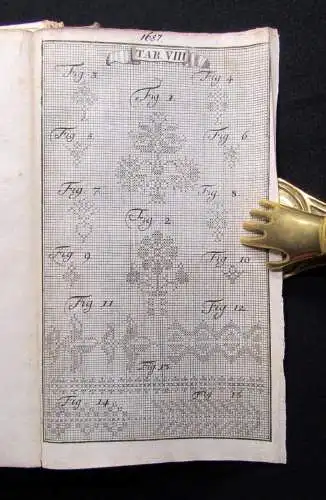 1657
TAB. VIII
Fig 3 Fig 4
Fig 1.
Fig 5 Fig 6
Fig 7 Fig 8
Fig 2
Fig 9 Fig 10
Fig 11 Fig 12
Fig 13
Fig 14 Fig 15